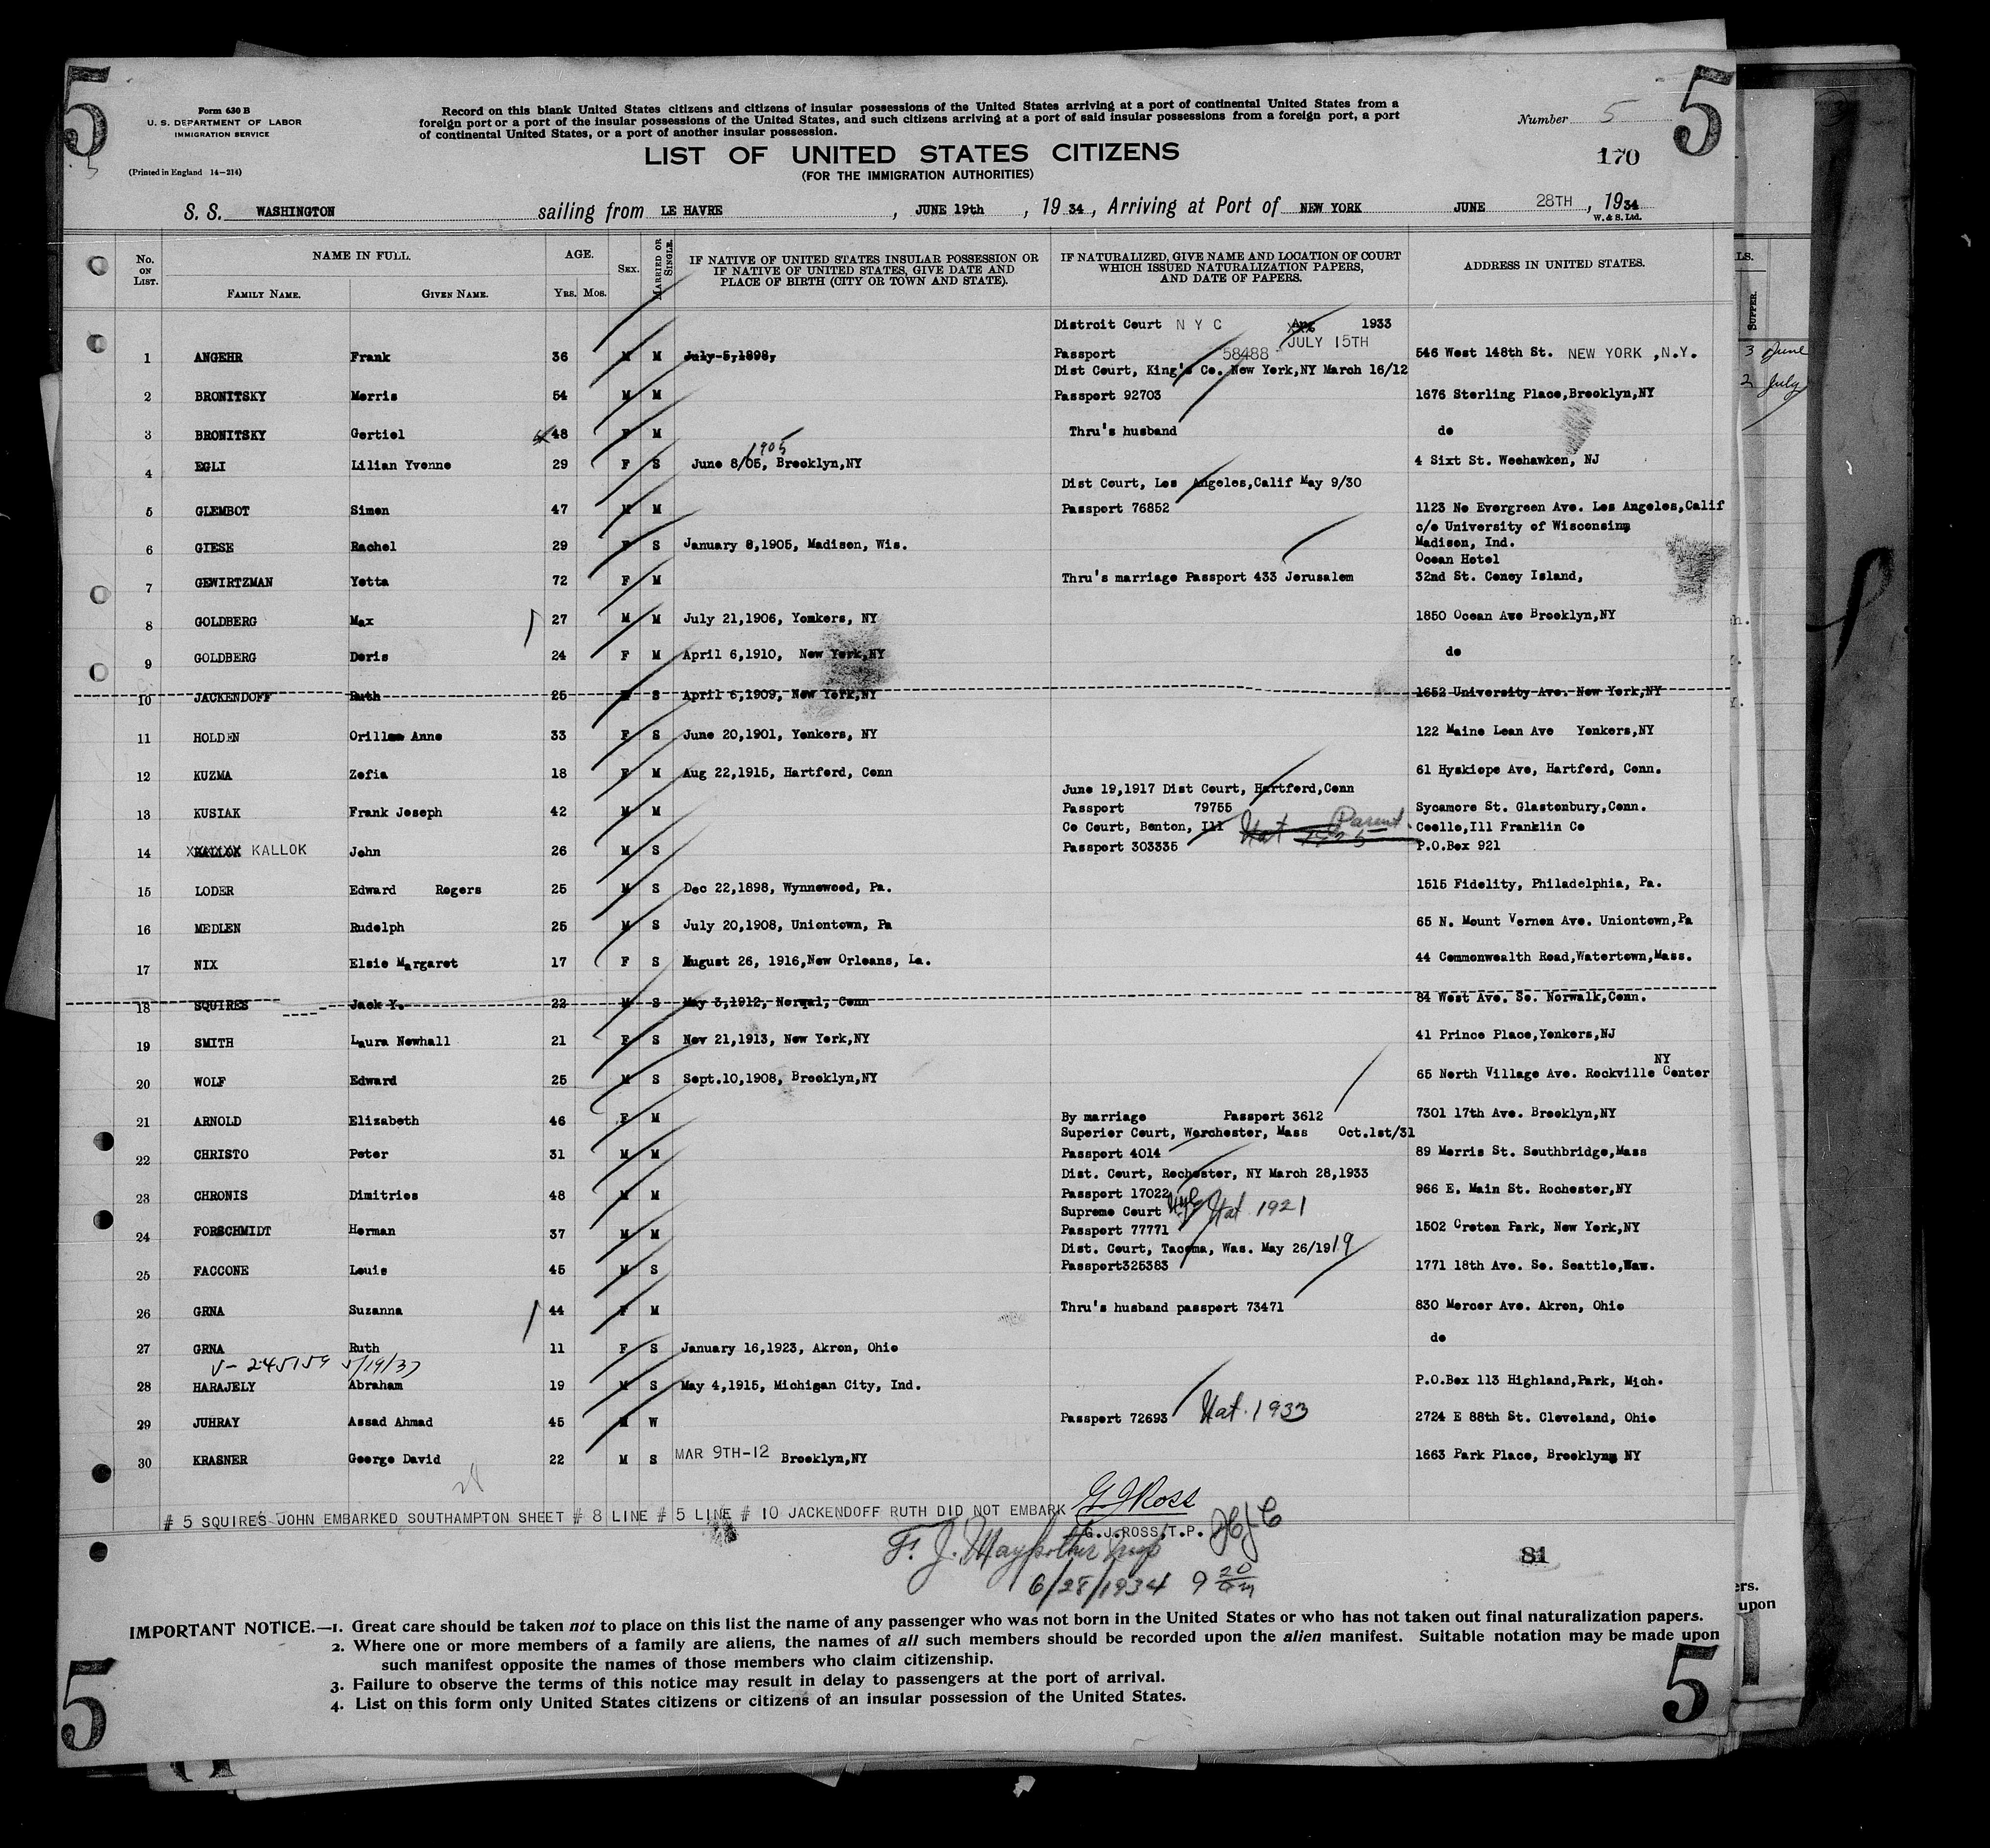 5 5
Form 630 B
U. S. DEPARTMENT OF LABOR
IMMIGRATION SERVICE
(Printed in England 14-214)
Record on this blank United States citizens and citizens of insular possessions of the United States arriving at a port of continental United States from a
foreign port or a port of the insular possessions of the United States, and such citizens arriving at a port of said insular possessions from a foreign port, a port
of continental United States, or a port of another insular possession.
Number 5
LIST OF UNITED STATES CITIZENS
170
(FOR THE IMMIGRATION AUTHORITIES)
S. S. WASHINGTON sailing from LE HAVRE, JUNE 19th, 1934, Arriving at Port of NEW YORK JUNE 28TH, 1934
W. & S. Ltd.
No. ON LIST. NAME IN FULL. FAMILY NAME. GIVEN NAME. AGE. YRS. MOS. SEX. MARRIED OR SINGLE. IF NATIVE OF UNITED STATES INSULAR POSSESSION OR IF NATIVE OF UNITED STATES, GIVE DATE AND PLACE OF BIRTH (CITY OR TOWN AND STATE). IF NATURALIZED, GIVE NAME AND LOCATION OF COURT WHICH ISSUED NATURALIZATION PAPERS, AND DATE OF PAPERS. ADDRESS IN UNITED STATES.
Distroit Court N Y C Aug 1933
JULY 15TH
1 ANGEHR Frank 36 M M July 5,1898, Passport 58488 546 West 148th St. NEW YORK ,N.Y.
Dist Court, King's Co. New York,NY March 16/12
2 BRONITSKY Morris 54 M M Passport 92703 1676 Sterling Place,Brooklyn,NY
3 BRONITSKY Gertiel 48 F M Thru's husband do
1905
4 EGLI Lilian Yvonne 29 F S June 8/05, Brooklyn,NY 4 Sixt St. Weehawken, NJ
Dist Court, Los Angeles,Calif May 9/30
5 GLEMBOT Simon 47 M M Passport 76852 1123 No Evergreen Ave. Los Angeles,Calif
c/o University of Wisconsin
6 GIESE Rachel 29 F S January 8,1905, Madison, Wis. Madison, Ind.
Ocean Hotel
7 GEWIRTZMAN Yetta 72 F M Thru's marriage Passport 433 Jerusalem 32nd St. Coney Island,
8 GOLDBERG Max 27 M M July 21,1906, Yonkers, NY 1850 Ocean Ave Brooklyn,NY
9 GOLDBERG Doris 24 F M April 6,1910, New York,NY do
10 JACKENDOFF Ruth 25 F S April 6,1909, New York,NY 1652 University Ave. New York,NY
11 HOLDEN Orill Anne 33 F S June 20,1901, Yonkers, NY 122 Maine Loan Ave Yonkers,NY
12 KUZMA Zofia 18 F M Aug 22,1915, Hartford, Conn 61 Hyskiope Ave, Hartford, Conn.
June 19,1917 Dist Court, Hartford,Conn
13 KUSIAK Frank Joseph 42 M M Passport 79755 Sycamore St. Glastonbury,Conn.
Co Court, Benton, Ill Nat Parent Coello,Ill Franklin Co
14 KALLOK KALLOK John 26 M S Passport 303335 P.O.Box 921
15 LODER Edward Rogers 25 M S Dec 22,1898, Wynnewood, Pa. 1515 Fidelity, Philadelphia, Pa.
16 MEDLEN Rudolph 25 M S July 20,1908, Uniontown, Pa 65 N. Mount Vernon Ave. Uniontown,Pa
17 NIX Elsie Margaret 17 F S August 26, 1916,New Orleans, La. 44 Commonwealth Road,Watertown,Mass.
18 SQUIRES Jack Y. 22 M S May 3,1912, Norwal, Conn 84 West Ave. So. Norwalk,Conn.
19 SMITH Laura Newhall 21 F S Nov 21,1913, New York,NY 41 Prince Place,Yonkers,NJ
NY
20 WOLF Edward 25 M S Sept.10,1908, Brooklyn,NY 65 North Village Ave. Rockville Center
21 ARNOLD Elizabeth 46 F M By marriage Passport 3612 7301 17th Ave. Brooklyn,NY
Superior Court, Worchester, Mass Oct.1st/31
22 CHRISTO Peter 31 M M Passport 4014 89 Morris St. Southbridge,Mass
Dist. Court, Rochester, NY March 28,1933
23 CHRONIS Dimitrios 48 M M Passport 17022 966 E. Main St. Rochester,NY
Supreme Court NYC Nat 1921
24 FORSCHMIDT Herman 37 M M Passport 77771 1502 Croton Park, New York,NY
Dist. Court, Tacoma, Was. May 26/1919
25 FACCONE Louis 45 M S Passport325383 1771 18th Ave. So. Seattle,Was.
26 GRNA Suzanna 44 F M Thru's husband passport 73471 830 Mercer Ave. Akron, Ohio
27 GRNA Ruth 11 F S January 16,1923, Akron, Ohio do
5-245159 5/19/37
28 HARAJELY Abraham 19 M S May 4,1915, Michigan City, Ind. P.O.Box 113 Highland,Park, Mich.
29 JUHRAY Assad Ahmad 45 M W Passport 72693 Nat. 1933 2724 E 88th St. Cleveland, Ohio
30 KRASNER George David 22 M S MAR 9TH-12 Brooklyn,NY 1663 Park Place, Brooklyn, NY
28
# 5 SQUIRES JOHN EMBARKED SOUTHAMPTON SHEET # 8 LINE # 5 LINE # 10 JACKENDOFF RUTH DID NOT EMBARK G J Ross
G.J.ROSS,T.P.
81
6/28/1934 9 20 am
IMPORTANT NOTICE.—1. Great care should be taken not to place on this list the name of any passenger who was not born in the United States or who has not taken out final naturalization papers.
2. Where one or more members of a family are aliens, the names of all such members should be recorded upon the alien manifest. Suitable notation may be made upon
such manifest opposite the names of those members who claim citizenship.
3. Failure to observe the terms of this notice may result in delay to passengers at the port of arrival.
4. List on this form only United States citizens or citizens of an insular possession of the United States.
5 5
LS.
SUPPER.
3 June
2 July
ers.
upon